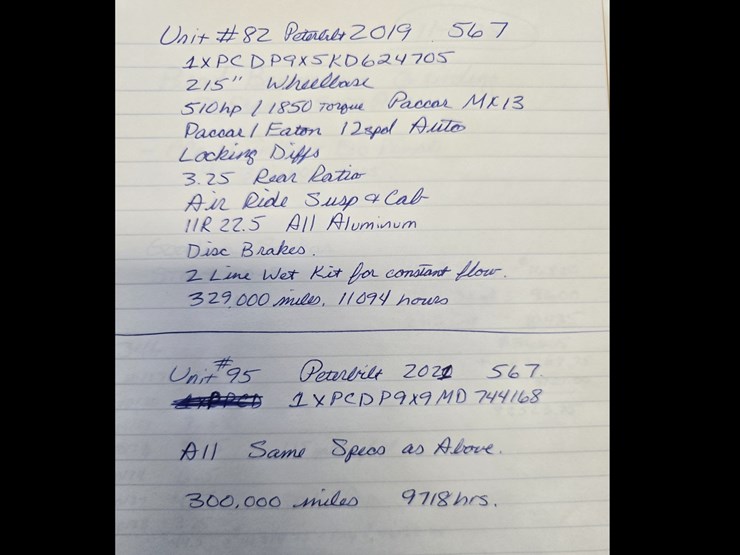 Unit #82 Peterbilt 2019 567
1XPCDP9X5KD624705
215" Wheelbase
510hp / 1850 Torque Paccar MX13
Paccar / Eaton 12spd Auto
Locking Diffs
3.25 Rear Ratio
Air Ride Susp & Cab
11R 22.5 All Aluminum
Disc Brakes.
2 Line Wet Kit for constant flow.
329,000 miles, 11094 hours
Unit #95 Peterbilt 2021 567.
1XPCDP9X9MD744168
All Same Specs as Above.
300,000 miles 9718hrs.